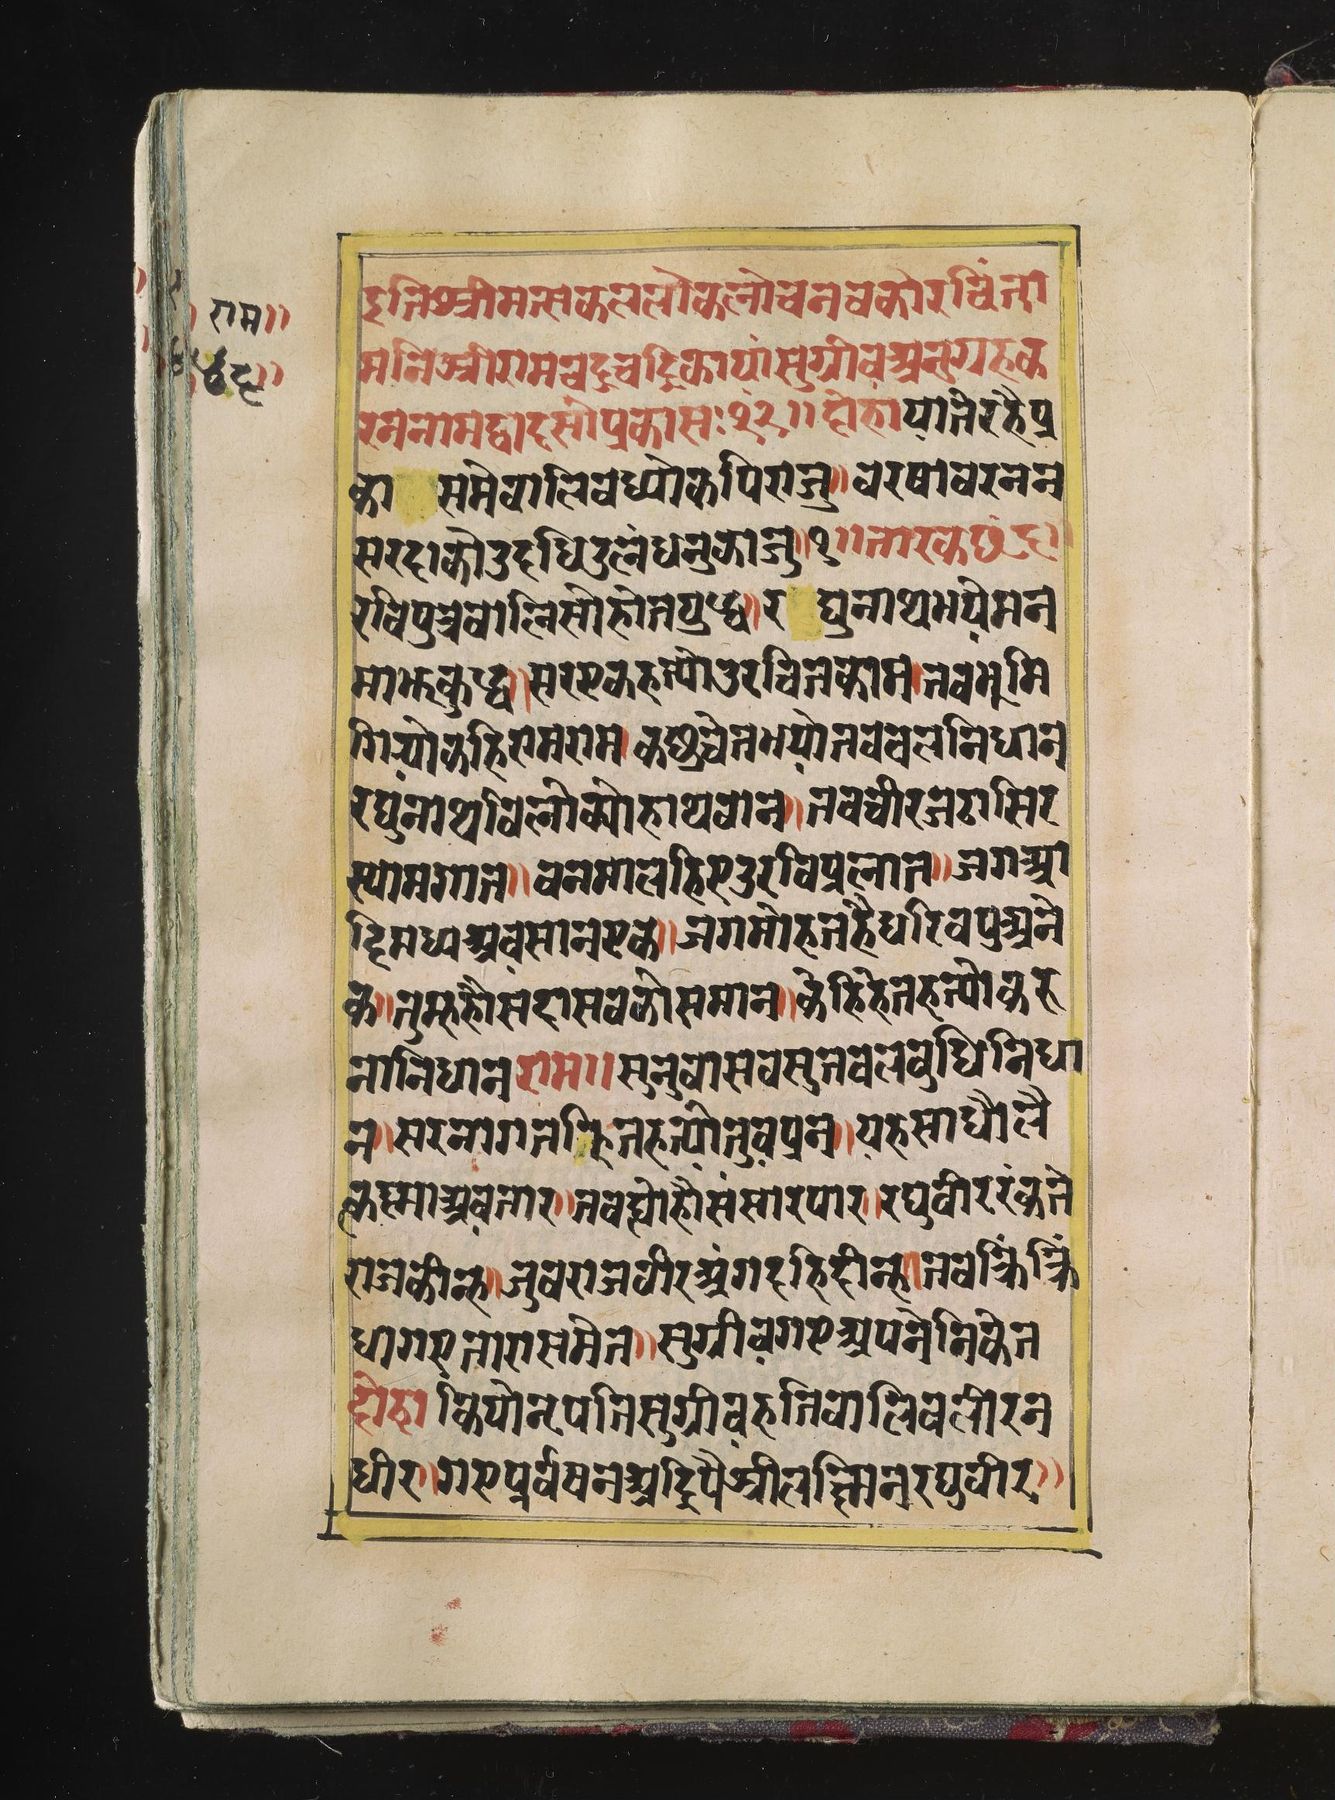 राम॥
४८॥
इतिश्रीमत्सकललोकलोचनचकोरचिंता
मनिश्रीरामचद्रचद्रिकायांसुग्रीवअनुग्रहक
रननामद्वादसोप्रकासः१२॥दोहायातेरहैप्र
का समेवालिवध्योकपिराजु॥वरषावरनन
सरदाकोउदधिउलंघनुकाजु॥१॥तारकछंद॥
रविपुत्रवालिसोहोतयुध्ध॥र घुनाथभयेमन
माझक्रुध्ध॥सरएकहन्योउरविनकाम।तवभूमि
गिर्योकहिरामराम।कछुचेतभयोतववलनिधान
रघुनाथविलोक्योहाथवान॥तवचीरजटासिर
स्यामगात॥वनमालहिएउरविप्रलात॥जगआ
दिमध्यअवसानएक॥जगमोहतहैधरिवपुअने
क॥तुम्हहौसदासवकोसमान॥केहिहेतहन्योकरु
नानिधान राम॥सुनुवासवसुतवलवुधिनिधा
न॥सरनागतहितहन्योतुवप्रान॥यहसाधौलै
कृष्मावतार॥तवह्वैहौसंसारपार॥रघुवीररंकते
राजकीन्ह॥जुवराजवीरअंगदहिदीन्ह॥तवकिंकिं
धागएतारासमेत॥सुग्रीवगएअपनेनिकेत
दोहा कियोनृपतिसुग्रीवहतिवालिवलीरन
धीर॥गएप्रर्वषनअद्रिपैश्रीलछिमनरघुवीर॥